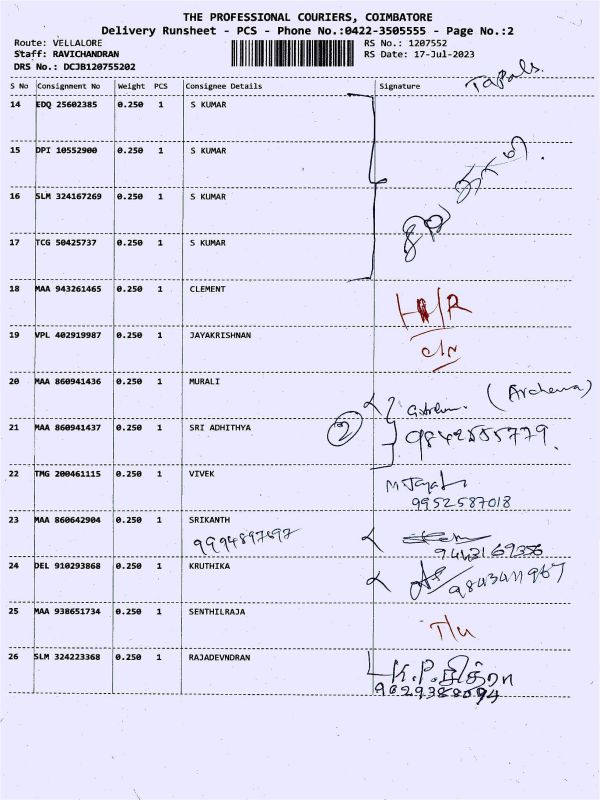 THE PROFESSIONAL COURIERS, COIMBATORE
Delivery Runsheet - PCS - Phone No.:0422-3505555 - Page No.:2
Route: VELLALORE RS No.: 1207552
Staff: RAVICHANDRAN RS Date: 17-Jul-2023
DRS No.: DCJB120755202
Tapals.
S No Consignment No Weight PCS Consignee Details Signature
14 EDQ 25602385 0.250 1 S KUMAR
15 DPI 10552900 0.250 1 S KUMAR
16 SLM 324167269 0.250 1 S KUMAR
17 TCG 50425737 0.250 1 S KUMAR
18 MAA 943261465 0.250 1 CLEMENT
19 VPL 402919987 0.250 1 JAYAKRISHNAN
20 MAA 860941436 0.250 1 MURALI
(Archena)
21 MAA 860941437 0.250 1 SRI ADHITHYA 2 9842555779.
22 TMG 200461115 0.250 1 VIVEK
9952587018
23 MAA 860642904 0.250 1 SRIKANTH
9994897697 9443169356
24 DEL 910293868 0.250 1 KRUTHIKA
9843411967
25 MAA 938651734 0.250 1 SENTHILRAJA
T/U
26 SLM 324223368 0.250 1 RAJADEVNDRAN
K.P.நித்ரா